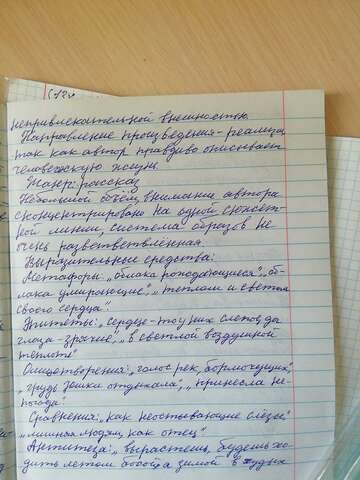 (12
непривлекательной внешностью
Направление произведения - реализм
так как автор правдиво описывает
человеческую жизнь
Жанр: рассказ
Небольшой объём, внимание автора
сконцентрировано на одной сюжет-
ной линии, система образов не
очень разветвленная.
Выразительные средства:
Метафоры: „облака рождающиеся", „об-
лака умирающие", „теплом и светом
своего сердца".
Эпитеты: „сердце-то у них слепое, да
глаза - зрячие", „в светлой воздушной
теплоте"
Олицетворения: „голос рек, бормочущих",
„грудь Юшки отдыхала", „принесла не-
погода"
Сравнения: „как неостывающие слёзы"
„ людям, как отец"
Антитеза: „вырастешь, будешь хо-
дить летом босой, а зимой в худых